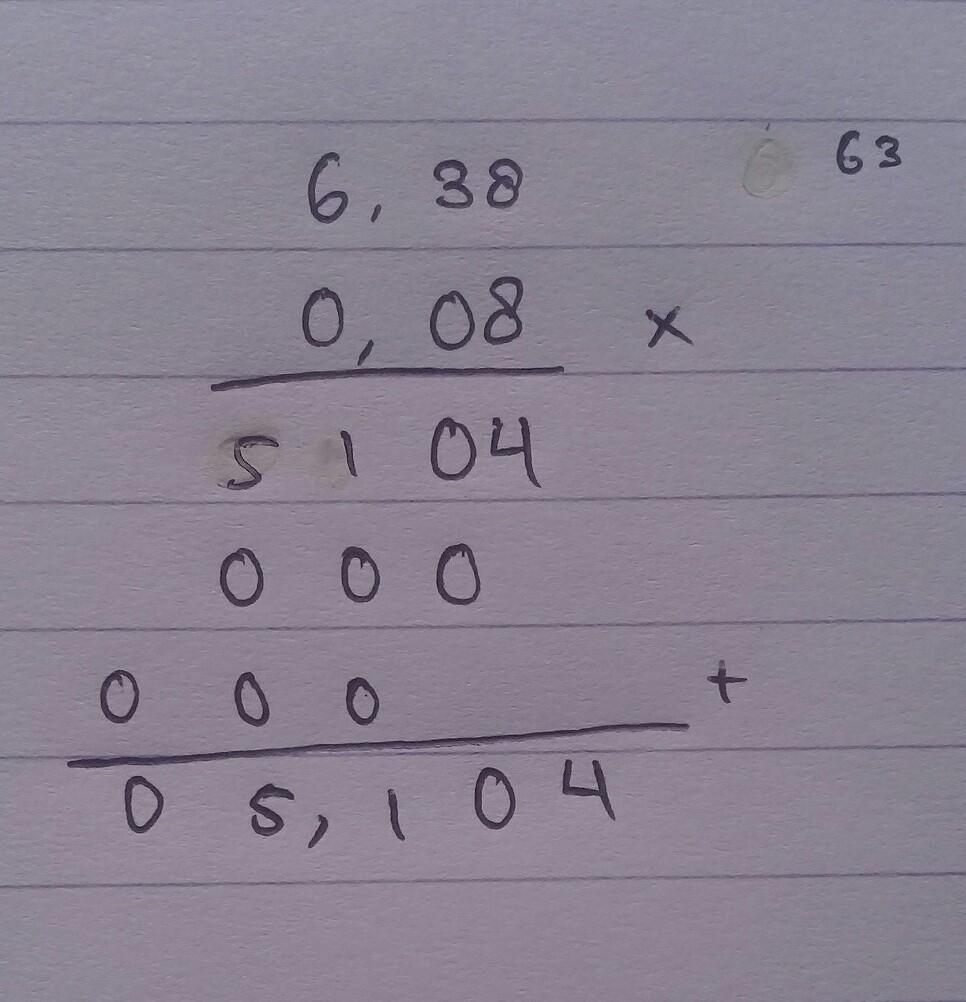 6,38 63
0,08 x
5104
000
000 +
05,104